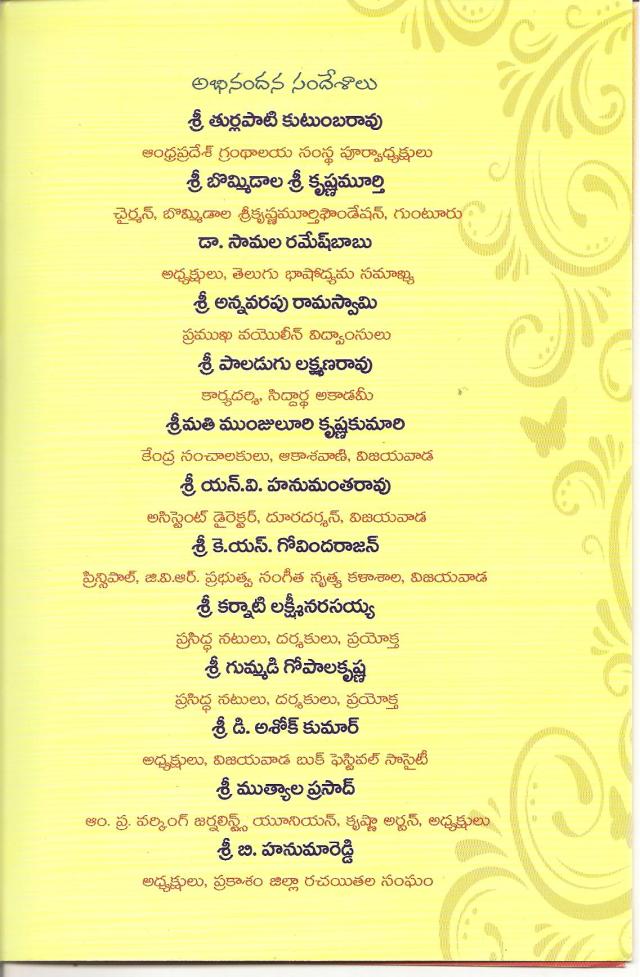 అభినందన సందేశాలు
శ్రీ తుర్లపాటి కుటుంబరావు
ఆంధ్రప్రదేశ్ గ్రంథాలయ సంస్థ పూర్వాధ్యక్షులు
శ్రీ బొమ్మిడాల శ్రీ కృష్ణమూర్తి
ఛైర్మన్, బొమ్మిడాల శ్రీకృష్ణమూర్తిఫౌండేషన్, గుంటూరు
డా. సామల రమేష్‌బాబు
అధ్యక్షులు, తెలుగు భాషోద్యమ సమాఖ్య
శ్రీ అన్నవరపు రామస్వామి
ప్రముఖ వయొలీన్ విద్వాంసులు
శ్రీ పాలడుగు లక్ష్మణరావు
కార్యదర్శి, సిద్దార్థ అకాడమీ
శ్రీమతి ముంజులూరి కృష్ణకుమారి
కేంద్ర సంచాలకులు, ఆకాశవాణి, విజయవాడ
శ్రీ యన్.వి. హనుమంతరావు
అసిస్టెంట్ డైరెక్టర్, దూరదర్శన్, విజయవాడ
శ్రీ కె.యస్. గోవిందరాజన్
ప్రిన్సిపాల్, జి.వి.ఆర్. ప్రభుత్వ సంగీత నృత్య కళాశాల, విజయవాడ
శ్రీ కర్నాటి లక్ష్మీనరసయ్య
ప్రసిద్ధ నటులు, దర్శకులు, ప్రయోక్త
శ్రీ గుమ్మడి గోపాలకృష్ణ
ప్రసిద్ధ నటులు, దర్శకులు, ప్రయోక్త
శ్రీ డి. అశోక్ కుమార్
అధ్యక్షులు, విజయవాడ బుక్ ఫెస్టివల్ సొసైటీ
శ్రీ ముత్యాల ప్రసాద్
ఆం. ప్ర. వర్కింగ్ జర్నలిస్ట్స్ యూనియన్, కృష్ణా అర్బన్, అధ్యక్షులు
శ్రీ బి. హనుమారెడ్డి
అధ్యక్షులు, ప్రకాశం జిల్లా రచయితల సంఘం